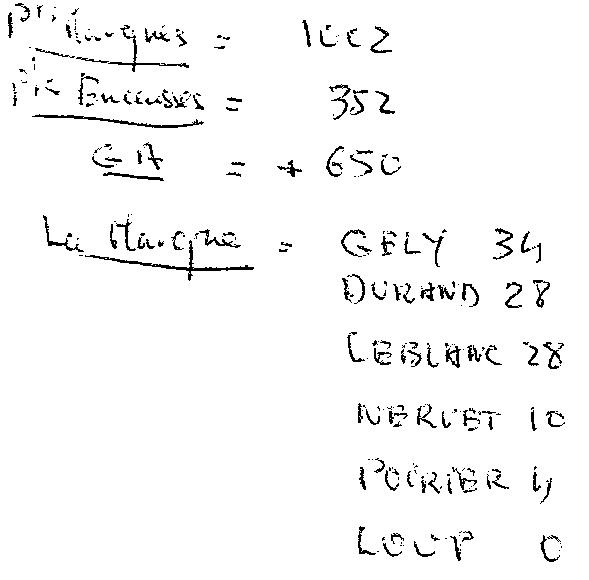 Pts Marqués = 1002
Pts Encaissés = 352
GA = + 650
La Marque = GELY 34
DURAND 28
LEBLANC 28
NERVET 10
POIRIER 4
LOUP 0